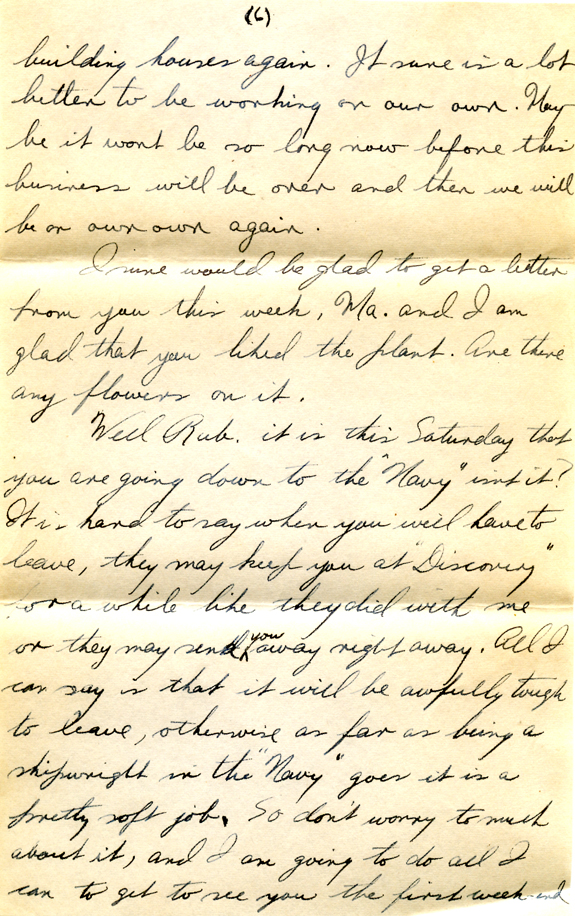 (6)
building houses again. It sure is a lot
better to be working on our own. May
be it wont be so long now before this
business will be over and then we will
be on our own again.
I sure would be glad to get a letter
from you this week, Ma. and I am
glad that you liked the plant. Are there
any flowers on it.
Well Rub. it is this Saturday that
you are going down to the "Navy" isnt it?
It is hard to say when you will have to
leave, they may keep you at "Discovery"
for a while like they did with me
or they may send you away right away. All I
can say is that it will be awfully tough
to leave, otherwise as far as being a
shipwright in the "Navy" goes it is a
pretty soft job. So don't worry to much
about it, and I are going to do all I
can to get to see you the first week-end